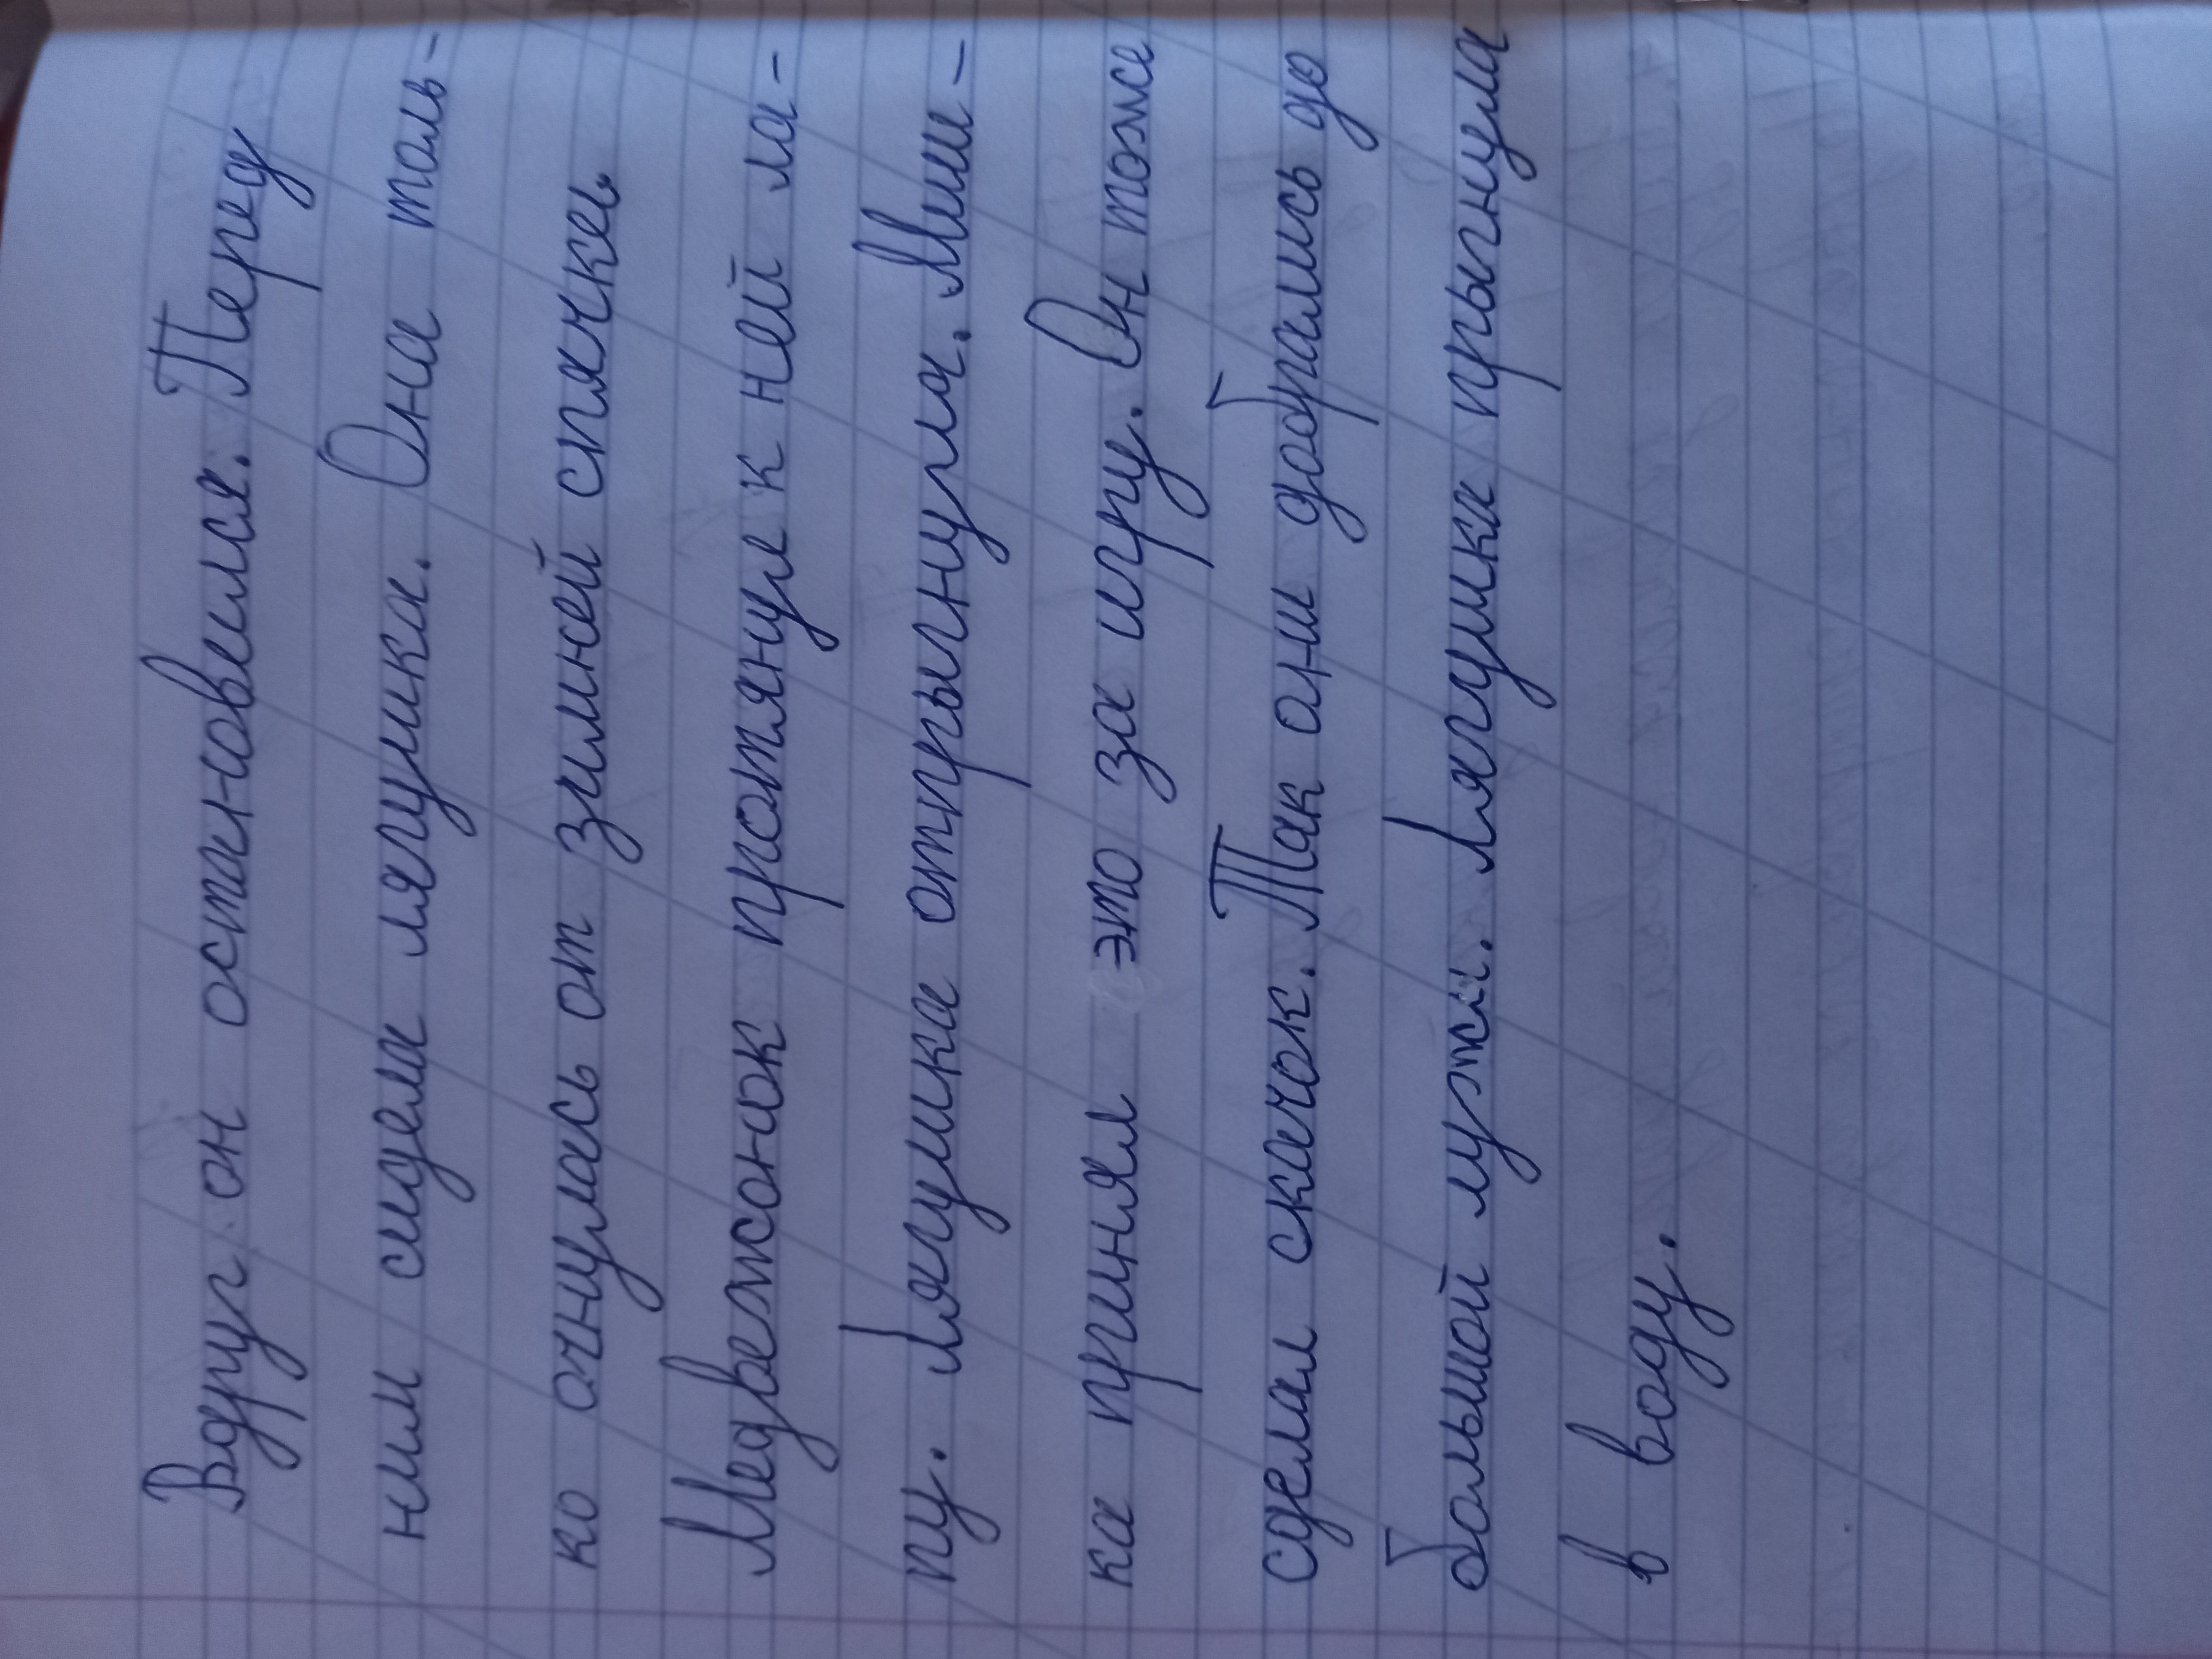 Вдруг он остановился. Перед
ним сидела лягушка. Она толь-
ко очнулась от зимней спячке.
Медвежонок протянул к ней ла-
пу. Лягушка отпрыгнула. Миш-
ка принял это за игру. Он тоже
сделал скачок. Так они добрались до
большой лужы. Лягушка прыгнула
в воду.